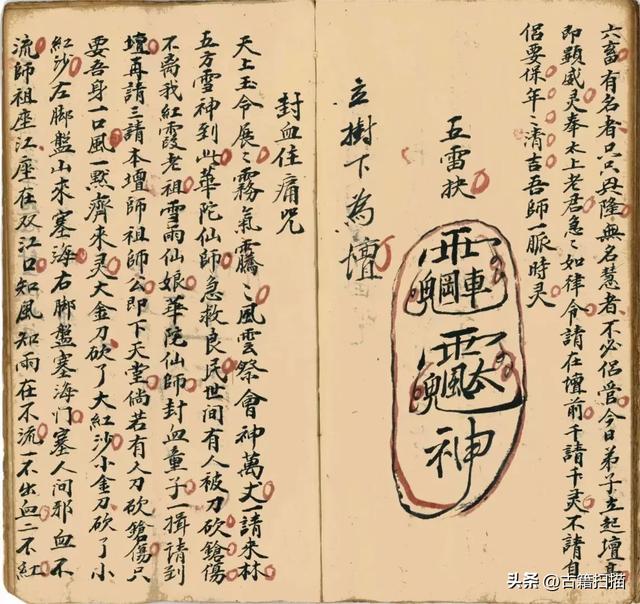 六畜有名者只只隆無名慧者不必侶管今日弟子立起壇
即顯威灵奉太上老君急〻如律令請在壇前千請千灵不請自
侶要保年〻濟吉吾師一脈時灵
五雷扶
神
立樹下為壇
封血住痛咒
天上玉令展〻霧氣騰〻風雲祭會神萬丈一請来林
五方雪神到此華陀仙師急救良民世间有人被刀砍鎗傷
不离我紅霞老祖雪雨仙娘華陀仙師封血童子一揖請到
壇再請三請本壇師祖師公即下天堂倘若有人刀砍鎗傷只
要吾身一口風一點齊来灵大金刀砍了大紅沙小金刀砍了小
紅沙左脚盤山來塞海右脚盤塞海门塞人间邪血不
流師祖座江座在双江口知風知雨在不流一不出血二不紅
头条 @古籍扫描